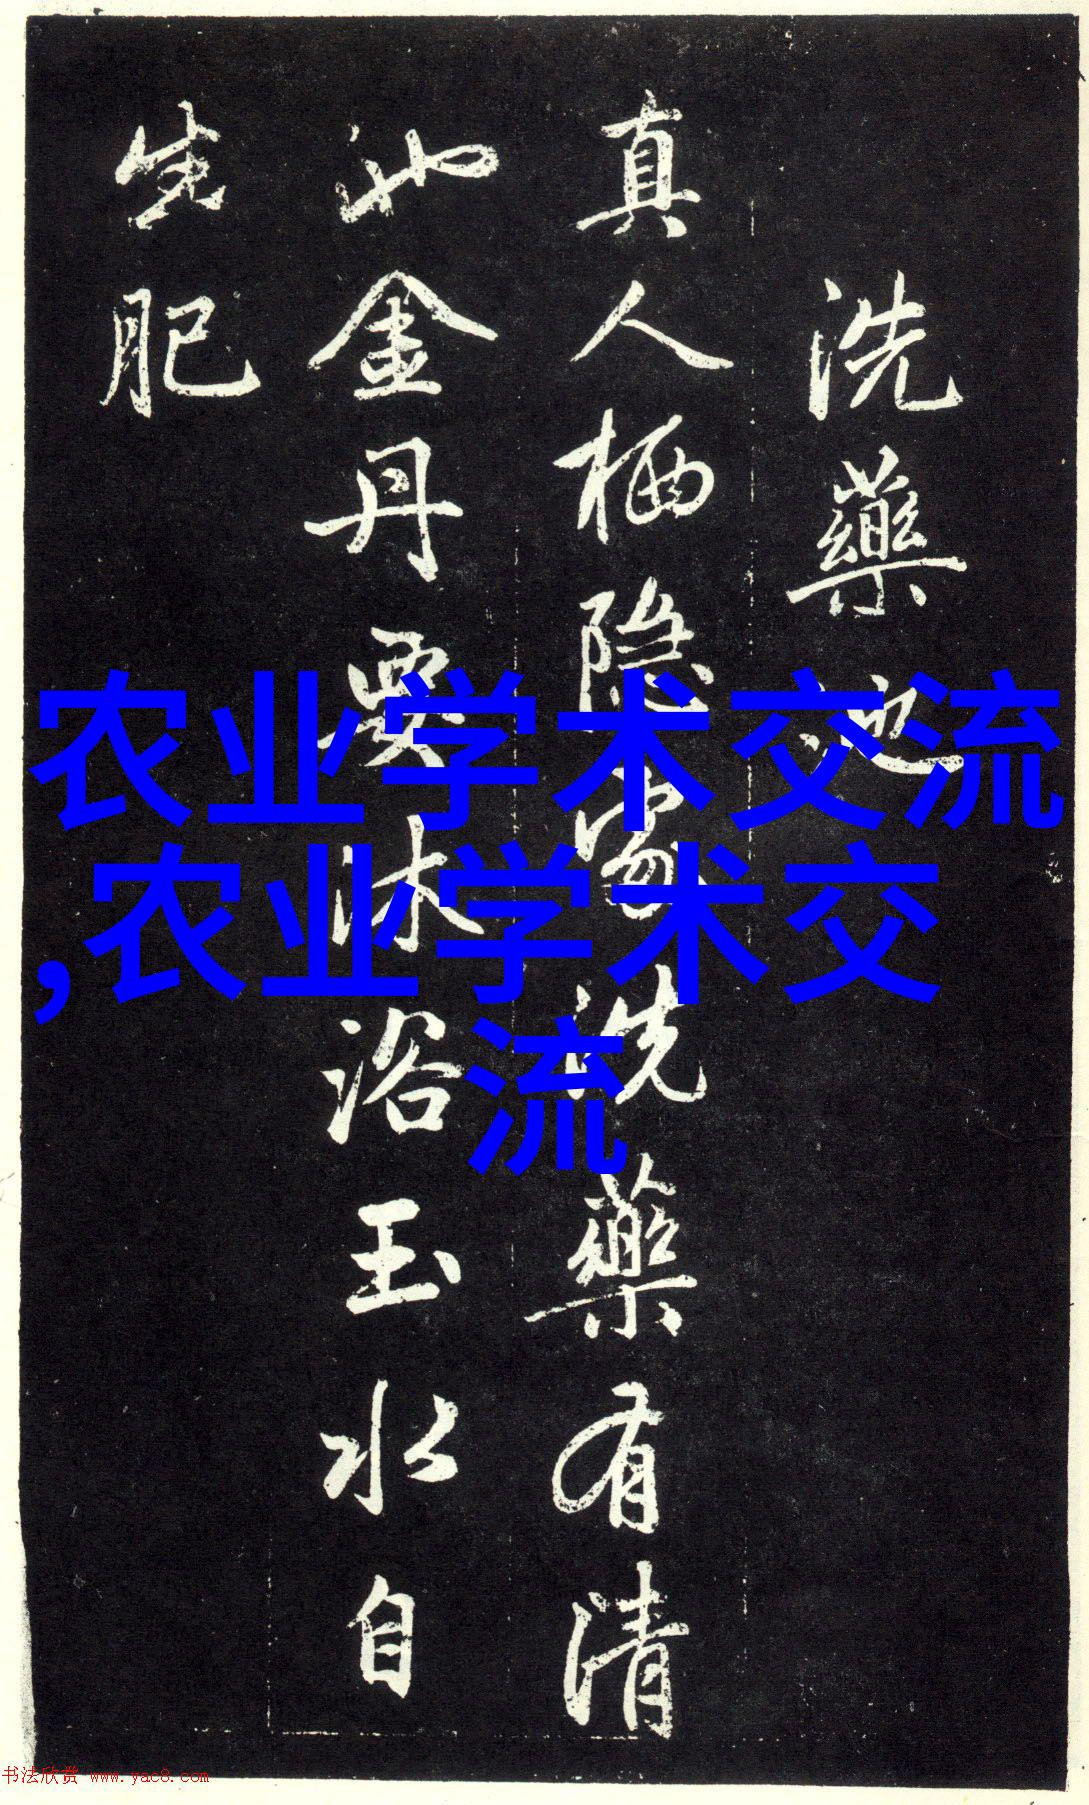 洗藥池
真人栖隐處洗藥有清
沘金丹要沐浴玉水自
生肥
农业学术交流
,农业学术交
流
书法欣赏 www.yac8.com